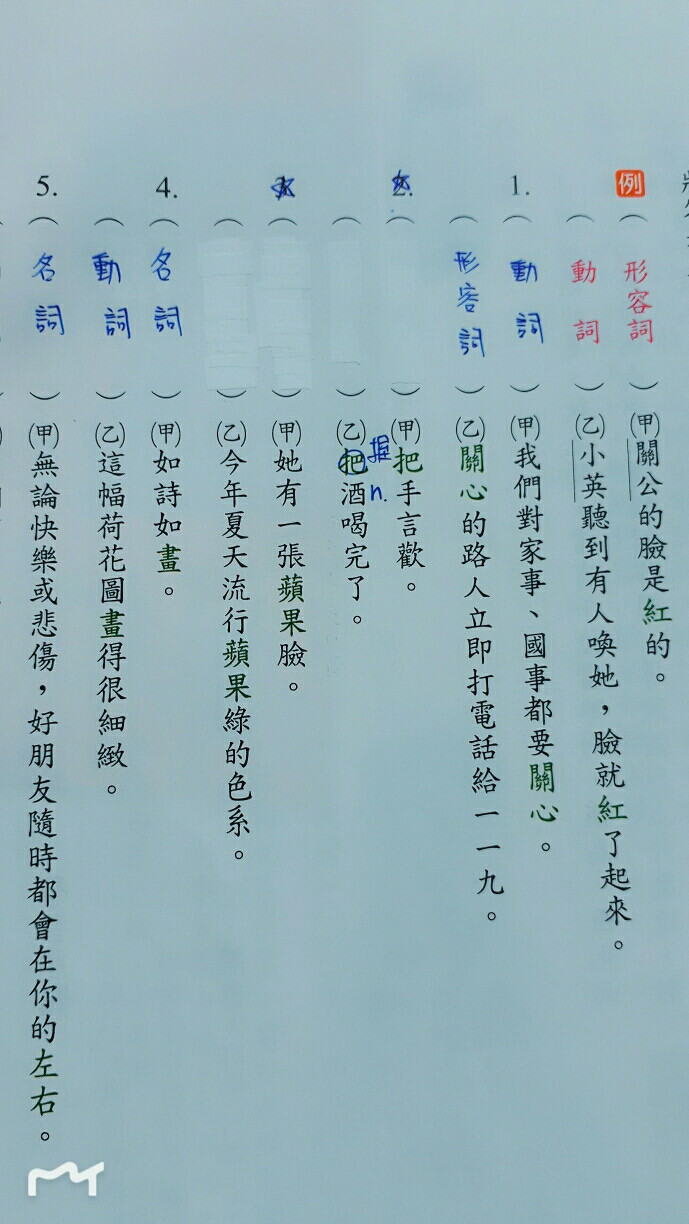 例（形容詞）㈠甲關公的臉是紅的。
（動詞）(乙)小英聽到有人喚她，臉就紅了起來。
1.（動詞）(甲)我們對家事、國事都要關心。
（形容詞）(乙)關心的路人立即打電話給一一九。
2.（ ）(甲)把手言歡。
握
n.
（ ）(乙)把酒喝完了。
（ ）(甲)她有一張蘋果臉。
（ ）(乙)今年夏天流行蘋果綠的色系。
4.（名詞）(甲)如詩如畫。
（動詞）(乙)這幅荷花圖畫得很細緻。
5.（名詞）(甲)無論快樂或悲傷，好朋友隨時都會在你的左右。